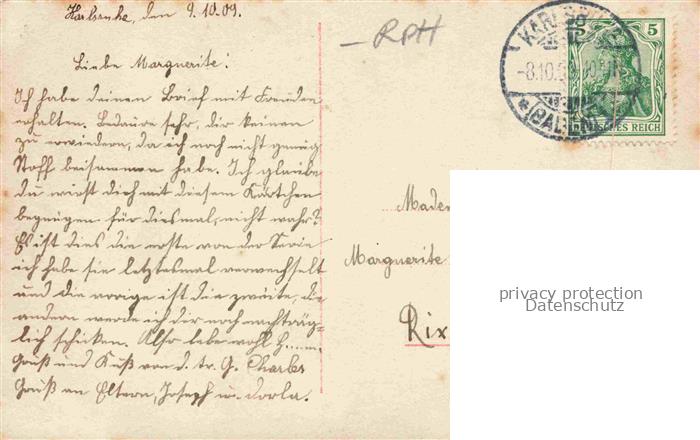 Karlsruhe, den 9.10.09.
Liebe Marguerite!
Ich habe deinen Brief mit Freuden
erhalten. Bedaure sehr, dir keinen
zu erwiedern, da ich noch nicht genug
Stoff beisammen habe. Ich glaube
du wirst dich mit diesem Kärtchen
begnügen für diesmal, nicht wahr?
Es ist dies die erste von der Serie
ich habe sie letztesmal verwechselt
und die vorige ist die zweite, die
andern werde ich dir noch nachträg=
lich schicken. Also lebe wohl
Gruß und Kuß von d. tr. G. Charles
Gruß an Eltern, Joseph u. Dorla.
RPH
KARLSRUHE
8.10.
(BADEN)
5
DEUTSCHES REICH
Madem
Marguerite
Rix
privacy protection
Datenschutz